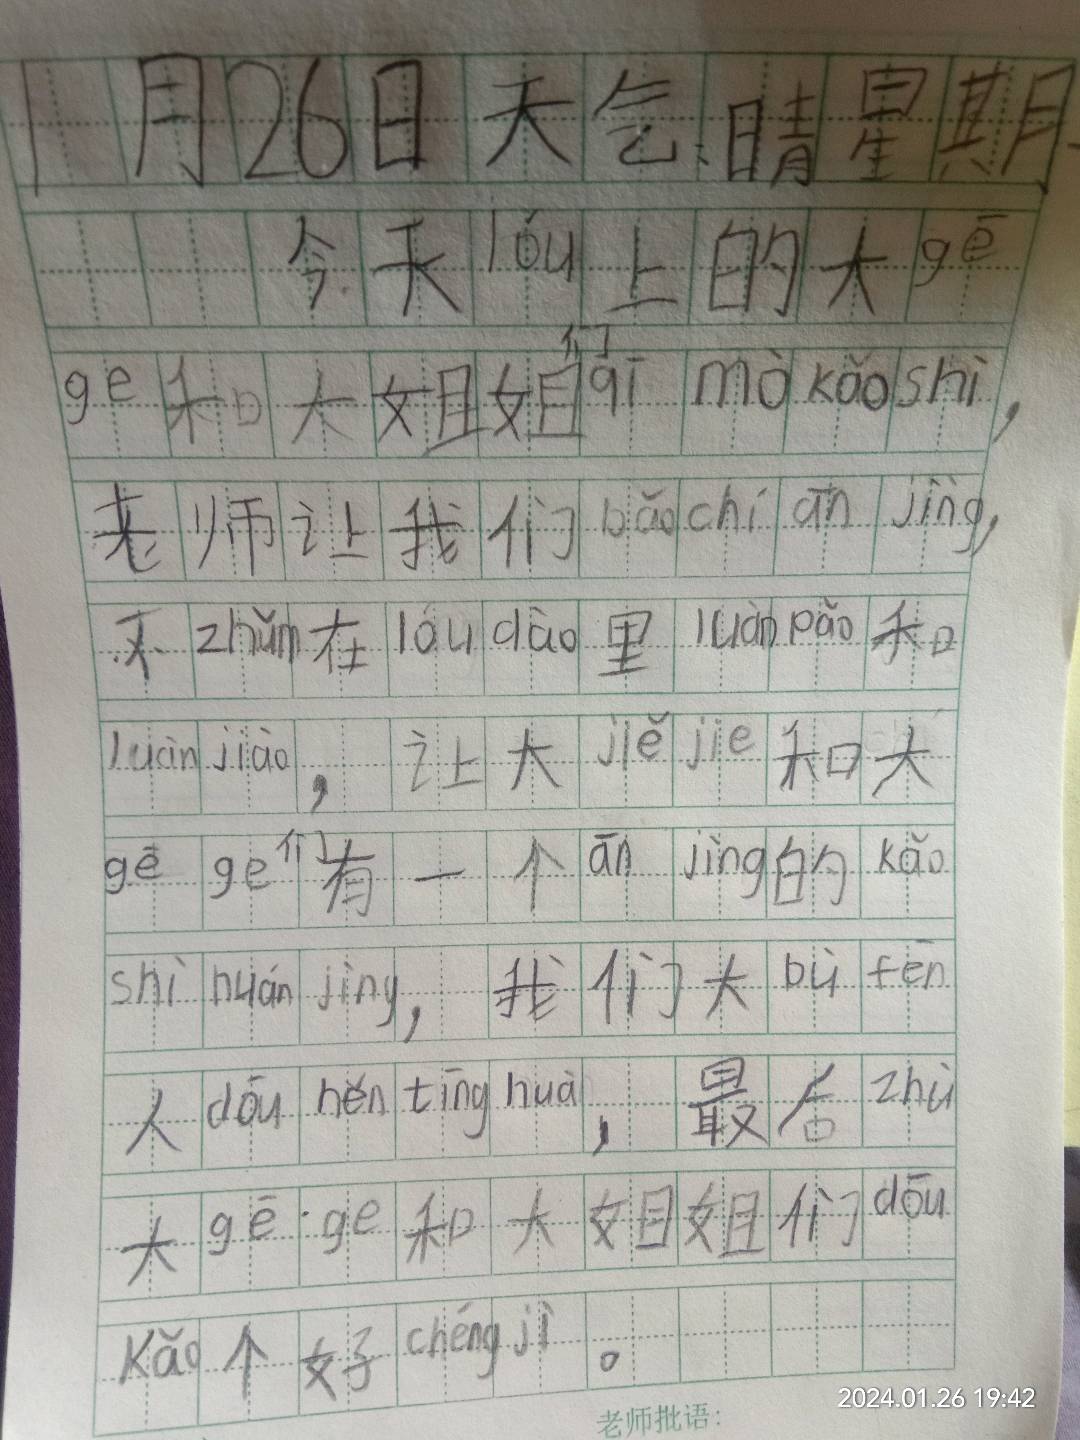 1月26日天气:晴星期
今天lóu上的大gē
ge和大姐姐们qī mò kǎo shì,
老师让我们bǎo chí ān jìng,
不zhǔn在lóu dào里luàn pǎo和
luàn jiào,让大jiě jie和大
gē ge们有一个ān jìng的kǎo
shì huán jìng,我们大bù fēn
人dōu hěn tīng huà,最后zhù
大gē ge和大姐姐们dōu
kǎo个好chéng jì。
老师批语:
2024.01.26 19:42